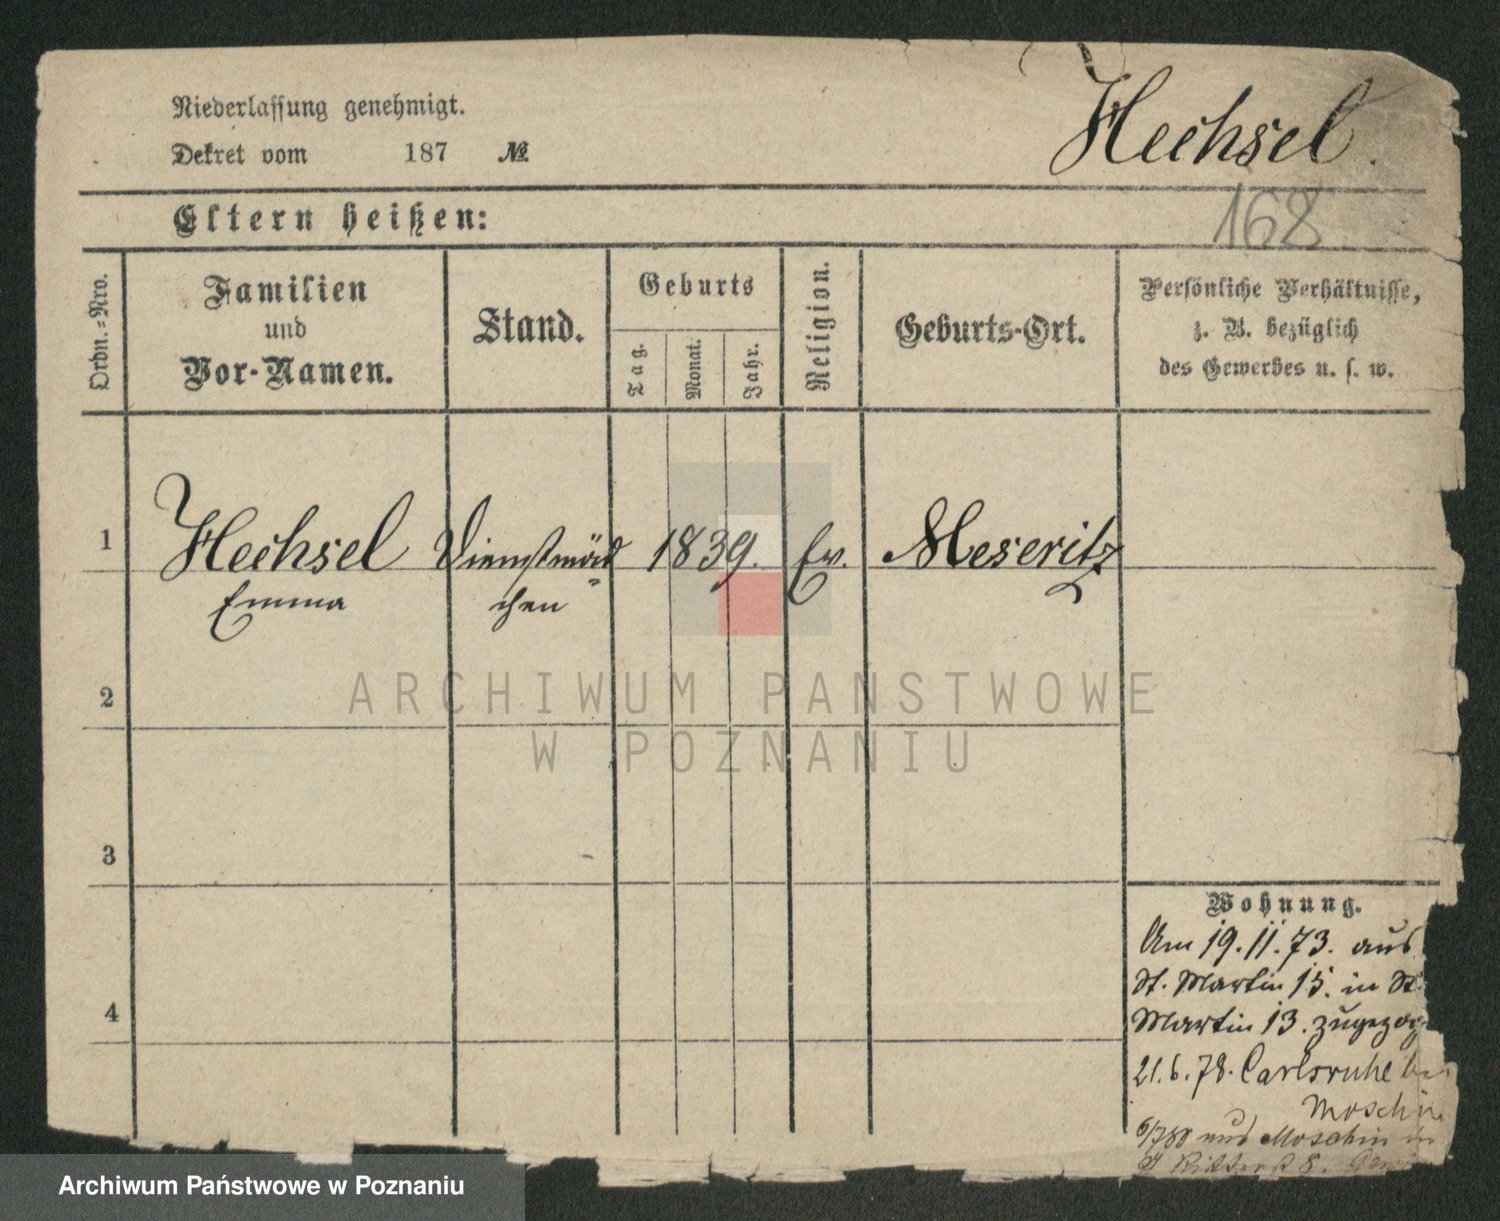 Niederlassung genehmigt.
Dekret vom 187 №
Hechsel.
168
Eltern heißen:
Ordn.-Nro.
Familien
und
Vor-Namen.
Stand.
Geburts
Tag.
Monat.
Jahr.
Religion.
Geburts-Ort.
Persönliche Verhältnisse,
z. B. bezüglich
des Gewerbes u. s. w.
1 Hechsel Dienstmäd 1839. Ev. Meseritz
Emma chen
2
3
4
Wohnung.
Am 19.11.73. aus
St. Martin 15. in St.
Martin 13. zugezog
21.6.78. Carlsruhe be
Moschin
6/780 aus Moschin in
8.
ARCHIWUM PAŃSTWOWE
W POZNANIU
Archiwum Państwowe w Poznaniu